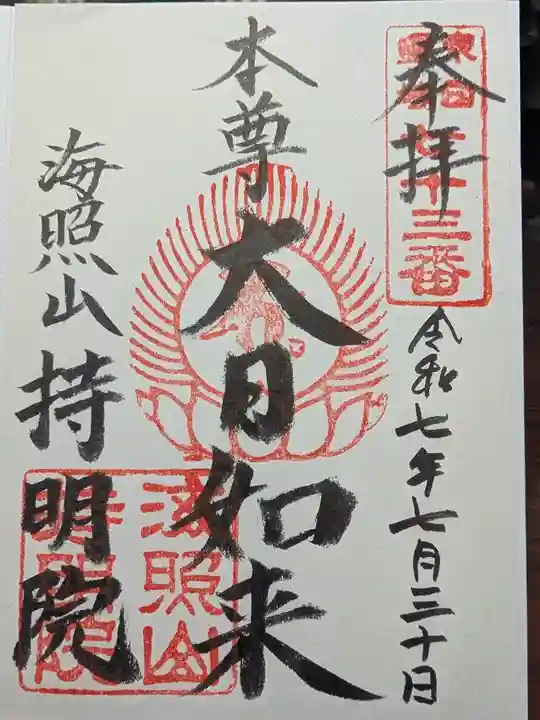 奉拝
三番
令和七年七月三十日
本尊
大日如来
海照山
持明院
海照山
持明院